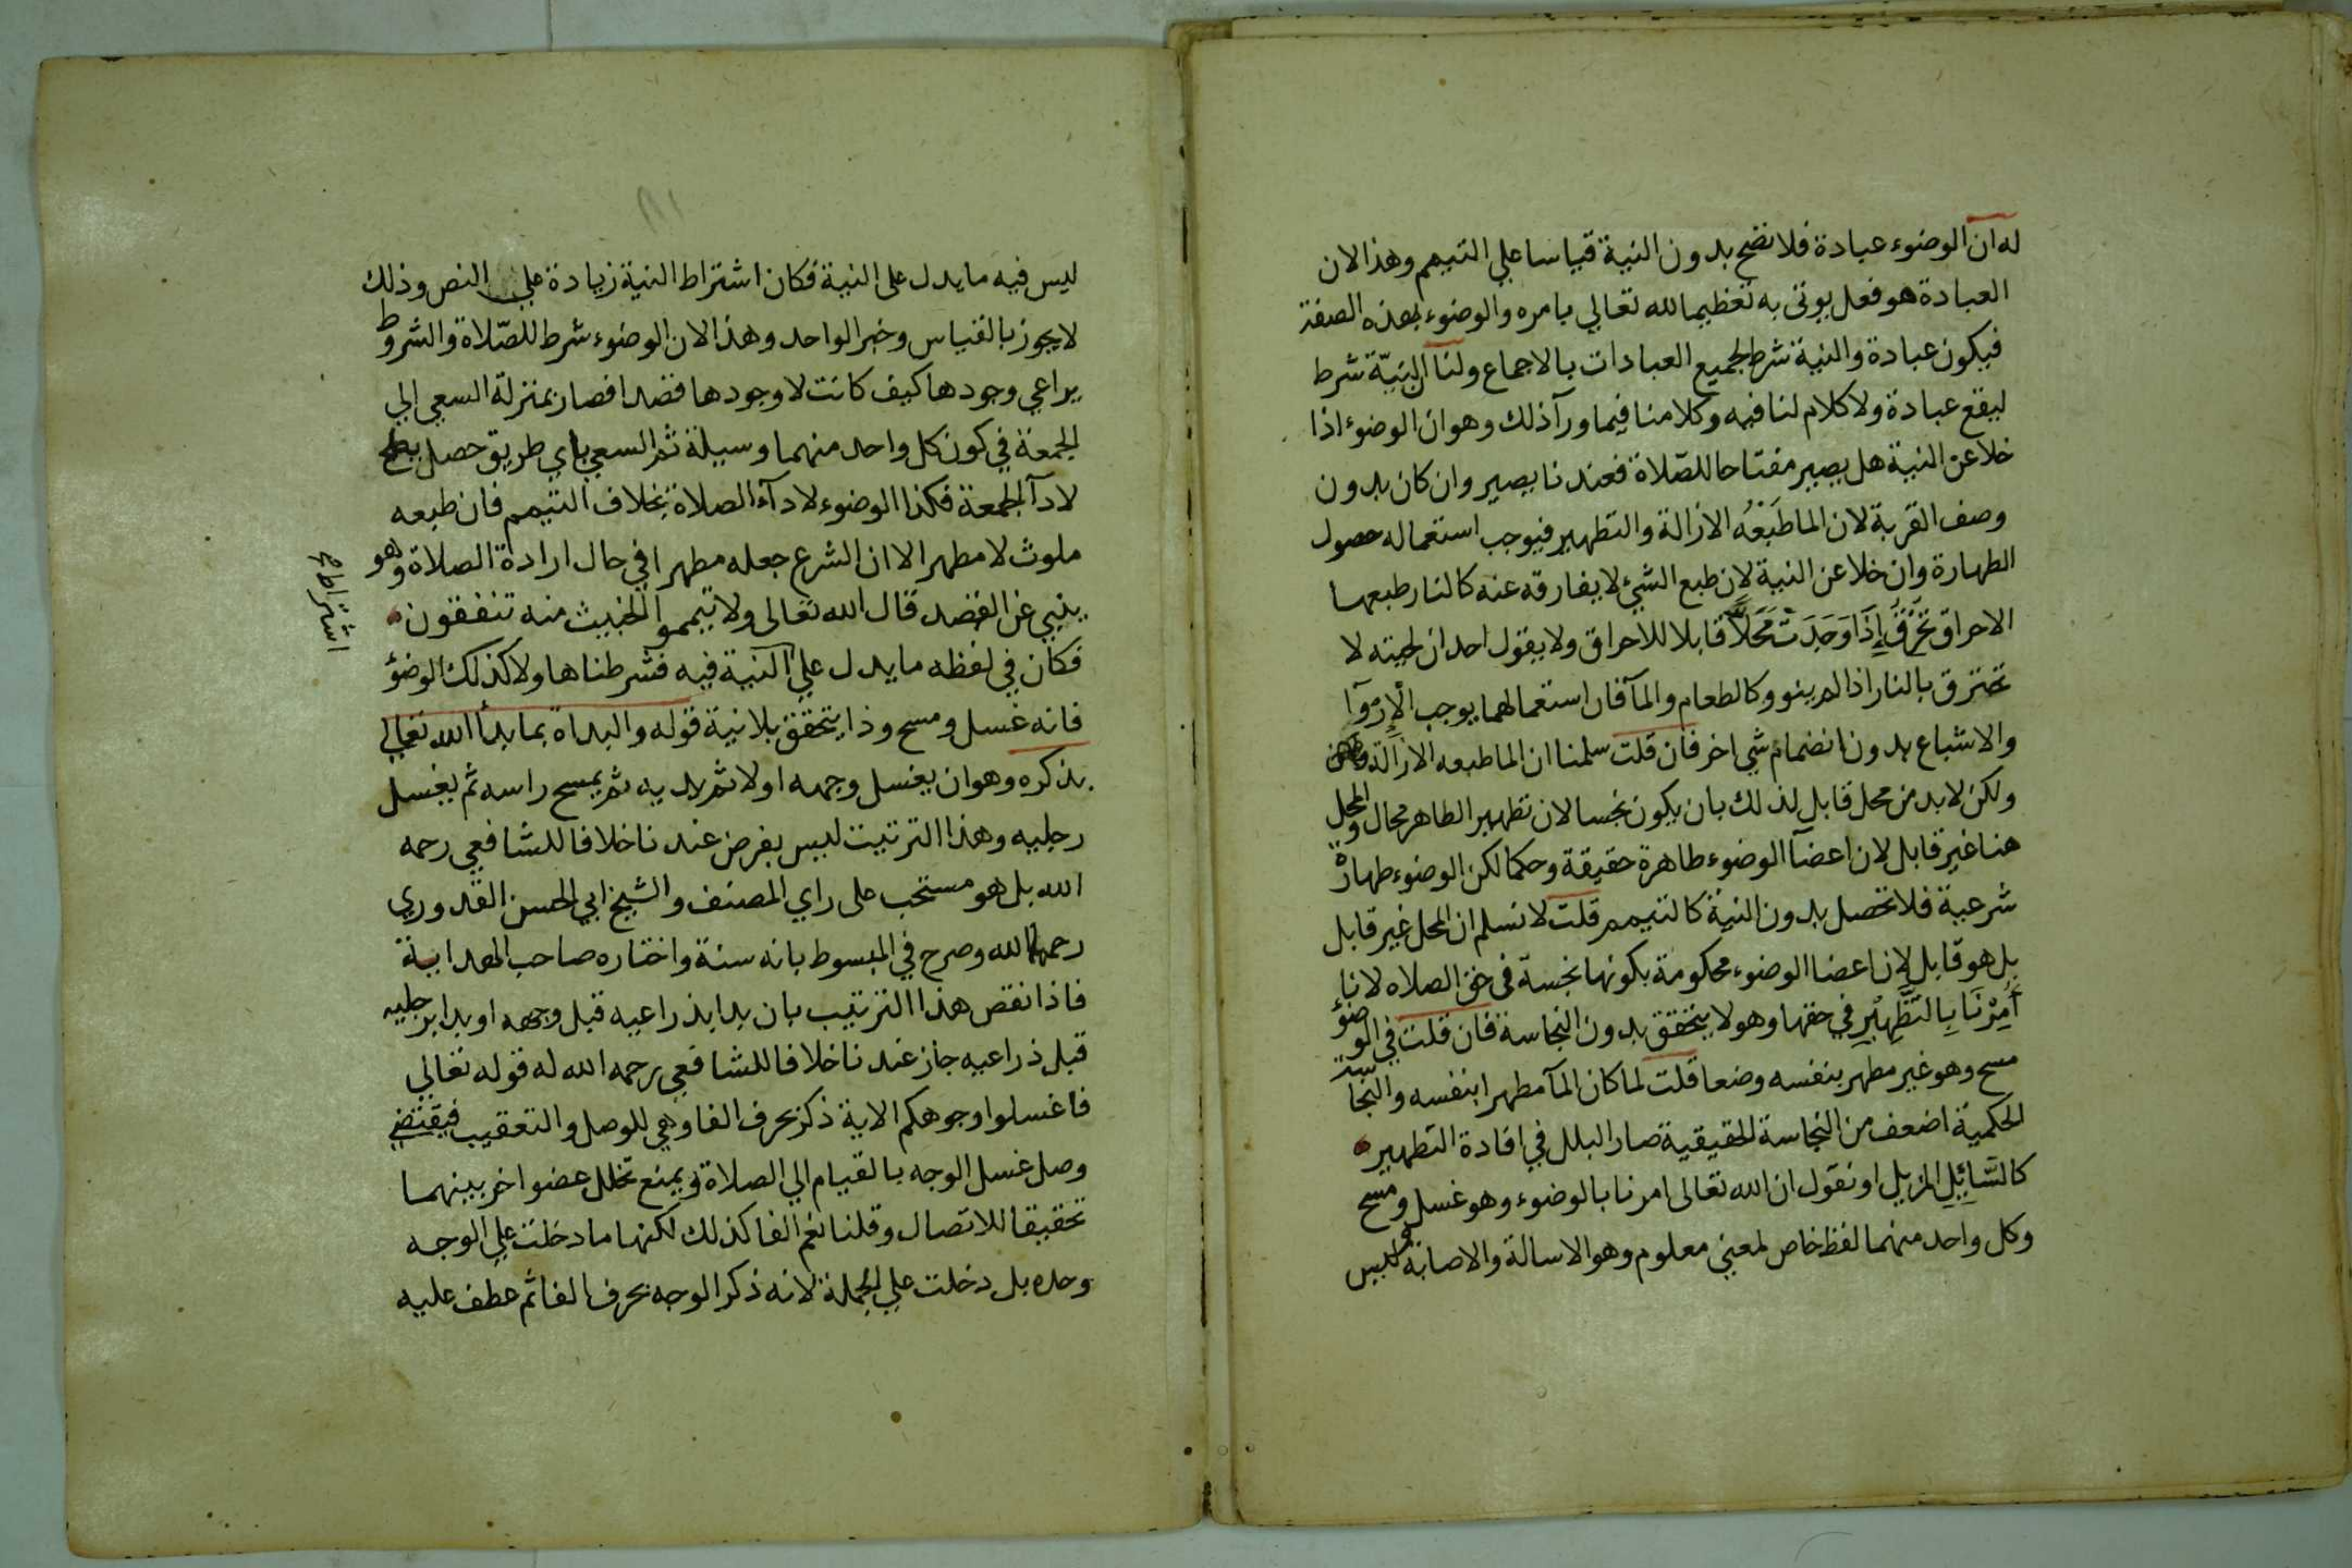 له ان الوضوء عبادة فلا تصح بدون النية قياسا علي التيمم وهذا لان
العبادة هو فعل يوتى به تعظيما لله تعالي بامره والوضوء بهذه الصفة
فيكون عبادة والنية شرط لجميع العبادات بالاجماع ولنا ان النيّة شرط
ليقع عبادة ولا كلام لنا فيه وكلامنا فيما ورآ ذلك وهو ان الوضوء اذا
خلا عن النية هل يصير مفتاحا للصّلاة فعندنا يصير وان كان بدون
وصف القربة لان الما طَبْعُه الازالة والتطهير فيوجب استعماله حصول
الطهارة وان خلا عن النية لان طبع الشئ لا يفارقه عنه كالنار طبعها
الاحراق تَحْرِقُ إِذَا وَجَدَتْ مَحَلاًّ قابلا للاحراق ولا يقول احد ان لحيته لا
تحترق بالنار اذا لم ينو وكالطعام والمآ فان استعمالهما يوجب الإِرْوَآ
والاشباع بدون انضمام شي اخر فان قلت سلمنا ان الما طبعه الازالة
ولكن لابد من محل قابل لذلك بان يكون نجسا لان تطهير الطاهر محال والمحل
هنا غير قابل لان اعضآ الوضوء طاهرة حقيقة وحكما لكن الوضوء طهارة
شرعية فلا تحصل بدون النية كالتيمم قلت لا نسلم ان المحل غير قابل
بل هو قابل لان اعضا الوضوء محكومة بكونها نجسة في حق الصلاه لانا
أُمِرْنَا بِالتَّطْهِيرِ في حقها وهو لا يتحقق بدون النجاسة فان قلت في الوضؤ
مسح وهو غير مطهر بنفسه وضعا قلت لما كان المآ مطهرا بنفسه والنجاسة
الحكمية اضعف من النجاسة الحقيقية صار البلل في افادة التطهير
كالسَّائِلِ المزيل او نقول ان الله تعالى امرنا بالوضوء وهو غسل ومسح
وكل واحد منهما لفظ خاص لمعنى معلوم وهو الاسالة والاصابة ليس
ليس فيه ما يدل على النية فكان اشتراط النية زيادة علي النص وذلك
لا يجوز بالقياس وخبر الواحد وهذا لان الوضوء شرط للصّلاة والشروط
يراعي وجودها كيف كانت لا وجودها قصدا فصار بمنزلة السعي الي
الجمعة في كون كل واحد منهما وسيلة ثم السعي باي طريق حصل يصلح
لادآ الجمعة فكذا الوضوء لادآء الصلاة بخلاف التيمم فان طبعه
ملوث لا مطهر الا ان الشرع جعله مطهرا في حال ارادة الصلاة وهو
ينبي عن القصد قال الله تعالى ولا تيمموا الخبيث منه تنفقون
فكان في لفظه ما يدل علي النية فيه فشرطناها ولا كذلك الوضؤ
فانه غسل ومسح وذا يتحقق بلا نية قوله والبداة بما بدأ الله تعالي
بذكره وهو ان يغسل وجهه اولا ثم يديه ثم يمسح راسه ثم يغسل
رجليه وهذا الترتيب ليس بفرض عندنا خلافا للشافعي رحمه
الله بل هو مستحب على راي المصنف والشيخ ابي الحسن القدوري
رحمهما الله وصرح في المبسوط بانه سنة واختاره صاحب الهداية
فاذا نقص هذا الترتيب بان بدا بذراعيه قبل وجهه او بدا برجليه
قبل ذراعيه جاز عندنا خلافا للشافعي رحمه الله له قوله تعالي
فاغسلوا وجوهكم الاية ذكر بحرف الفا وهي للوصل والتعقيب فيقتضي
وصل غسل الوجه بالقيام الي الصلاة ويمنع تخلل عضو اخر بينهما
تحقيقا للاتصال وقلنا نعم الفا كذلك لكنها ما دخلت علي الوجه
وحده بل دخلت علي الجملة لانه ذكر الوجه بحرف الفا ثم عطف عليه
اشتراط